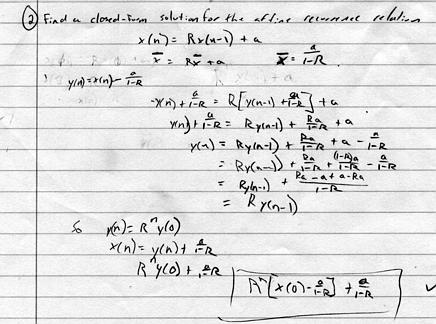 ② Find a closed-form solution for the affine recurrence relation
x(n) = Rx(n-1) + a
x̄ = Rx̄ + a    x̄ = a/(1-R)
y(n) = x(n) - a/(1-R)
y(n) + a/(1-R) = R[y(n-1) + a/(1-R)] + a
y(n) + a/(1-R) = Ry(n-1) + Ra/(1-R) + a
y(n) = Ry(n-1) + Ra/(1-R) + a - a/(1-R)
= Ry(n-1) + Ra/(1-R) + (1-R)a/(1-R) - a/(1-R)
= Ry(n-1) + (Ra - a + a - Ra)/(1-R)
= Ry(n-1)
So y(n) = Rⁿy(0)
x(n) = y(n) + a/(1-R)
Rⁿy(0) + a/(1-R)
Rⁿ[x(0) - a/(1-R)] + a/(1-R) ✓